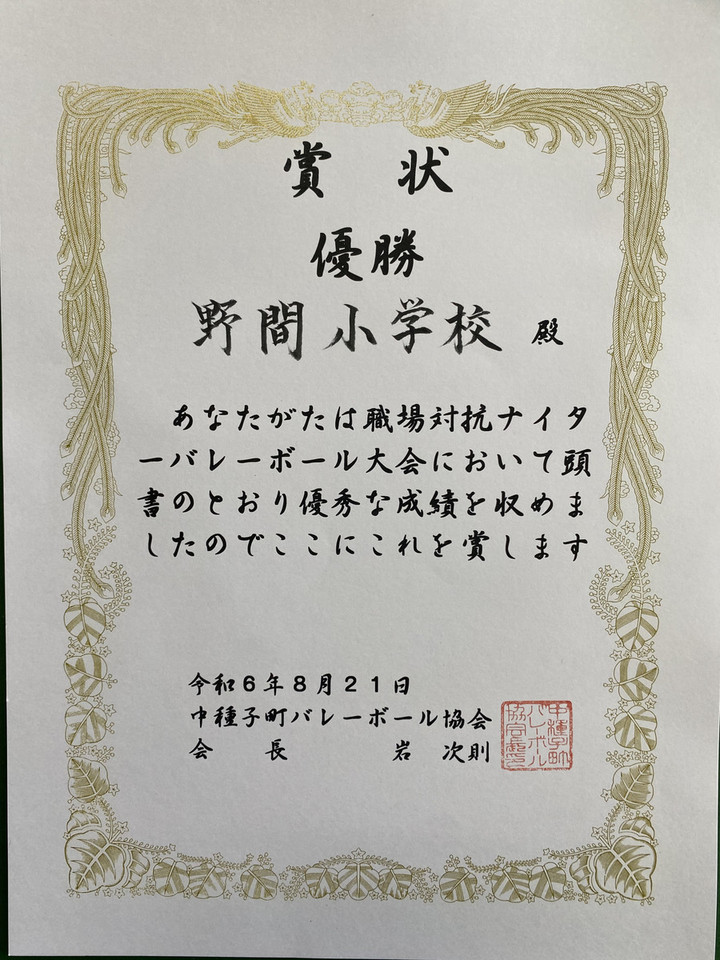 賞　状
優勝
野間小学校　殿
あなたがたは職場対抗ナイタ
ーバレーボール大会において頭
書のとおり優秀な成績を収めま
したのでここにこれを賞します
令和６年８月２１日
中種子町バレーボール協会
会　長　岩　次則
中種子町
バレーボル
協会長印